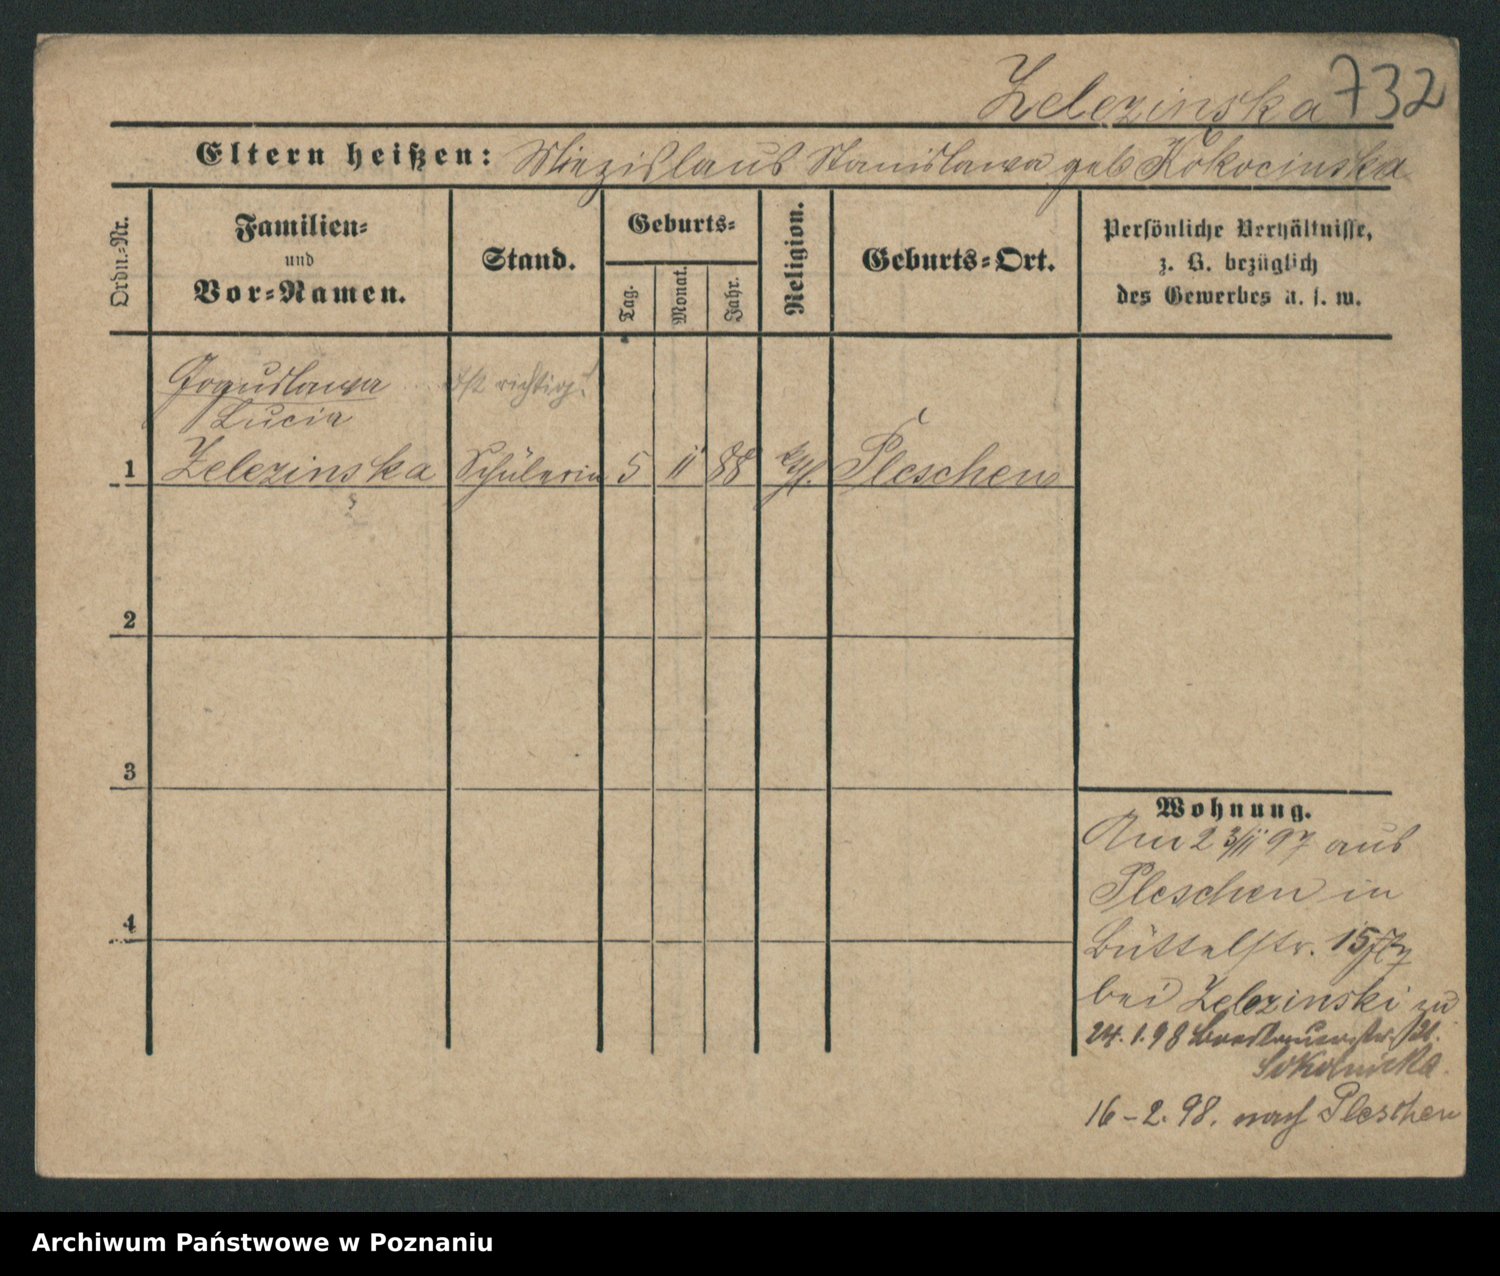 Zelezinska 732
Eltern heißen: Miezislaus Stanislawa geb Kokocinska
Ordn.-Nr.
Familien-
und
Vor-Namen.
Stand.
Geburts-
Tag.
Monat.
Jahr.
Religion.
Geburts-Ort.
Persönliche Verhältnisse,
z. B. bezüglich
des Gewerbes u. s. w.
Ist richtig!
Lucia
1 Zelezinska Schülerin 5 11 88 kath. Pleschen
2
3
4
Wohnung.
Am 23/11 97 aus
Pleschen in
Büttelstr. 15
bei Zelezinski zu
24. 1. 98 Breslauerstr.
Sokolnicka.
16-2. 98. nach Pleschen
Archiwum Państwowe w Poznaniu